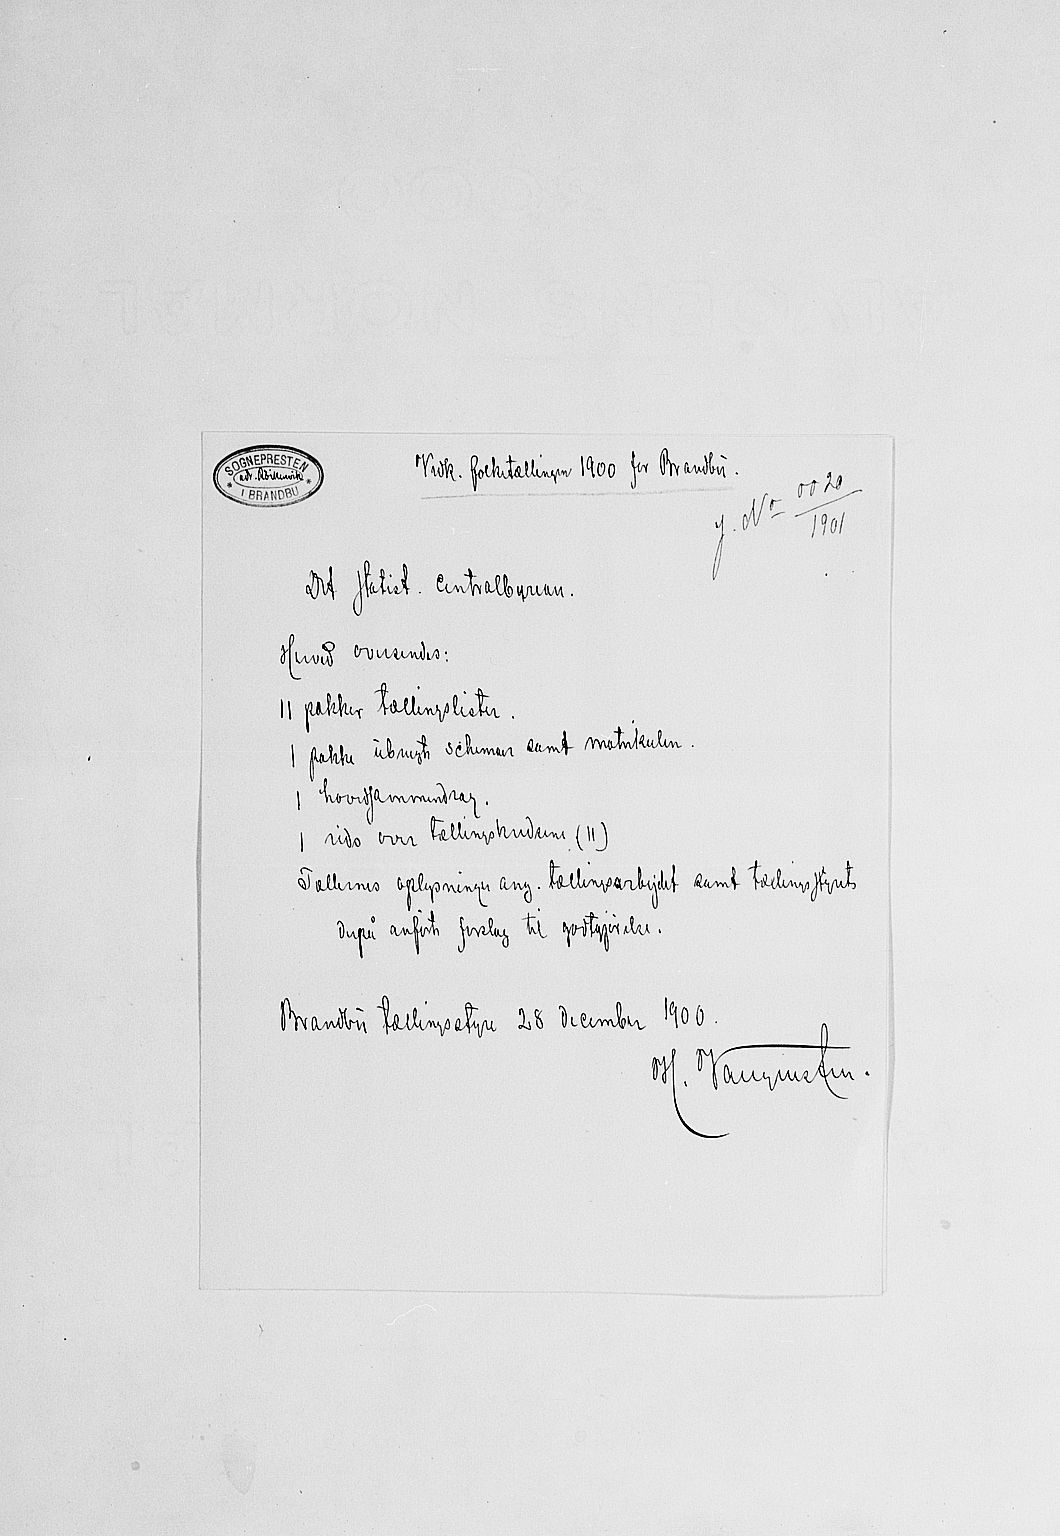 SOGNEPRESTEN
adr.
I BRANDBU
Vedk. folketællingen 1900 for Brandbu.
J. No 0020/1901
Det statist. Centralbyreau.
Herved oversendes:
11 pakker tællingslister.
1 pakke ubrugte schemaer samt matrikulen.
1 hovedsammendrag.
1 rids over tællingskredsene (11)
Tællernes oplysninger ang. tællingsarbejdet samt tællingsstyrets
derpå anførte forslag til godtgjörelse.
Brandbu tællingsstyre 28 December 1900.
H. Vangensten.